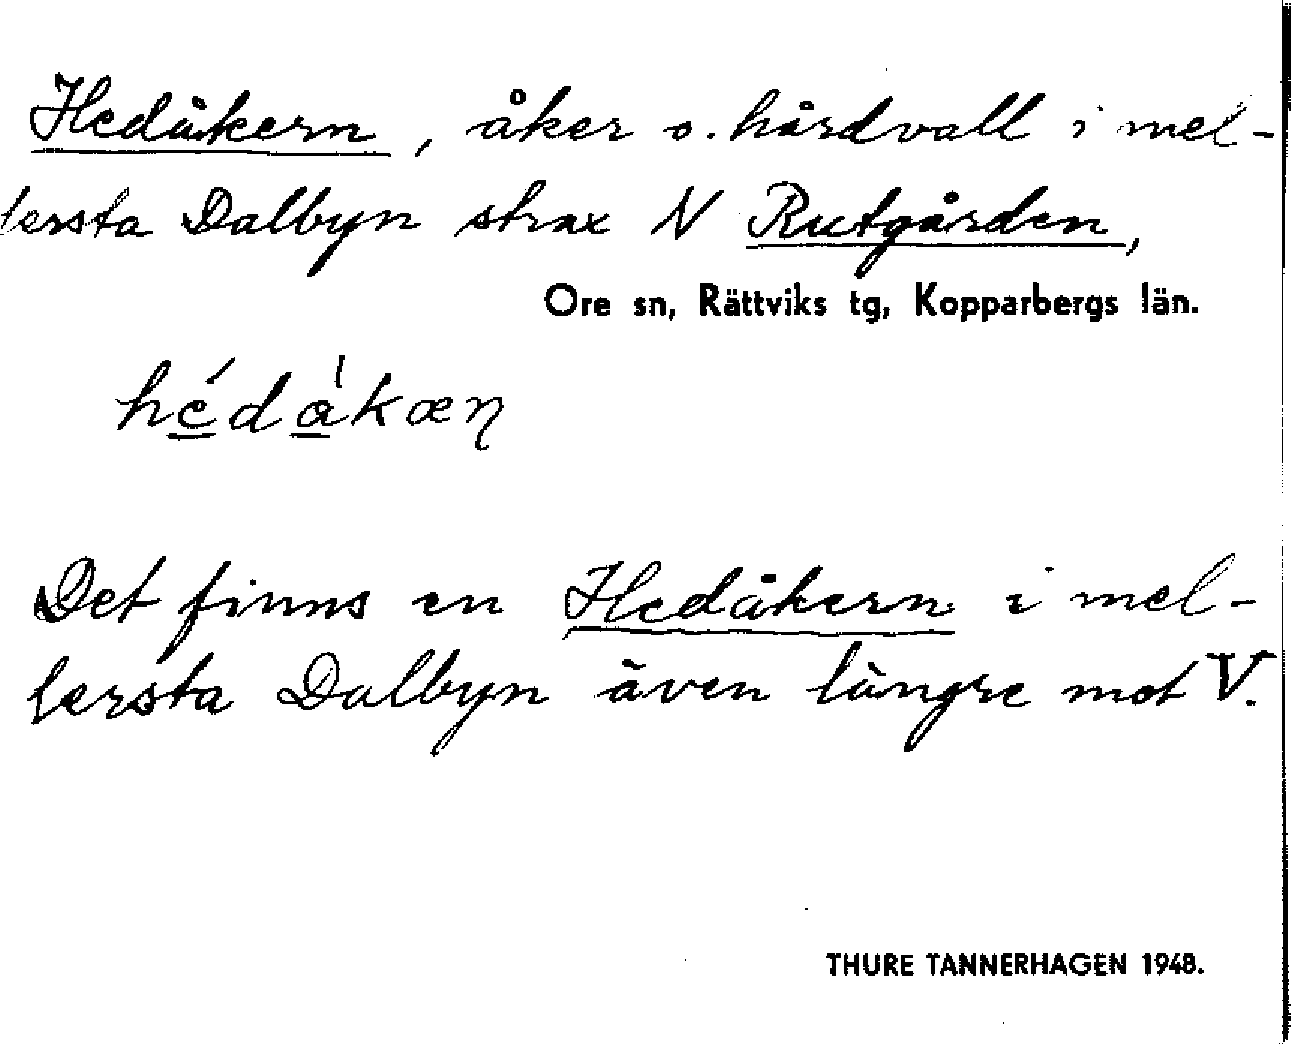 Hedåkern, åker o. hårdvall i mel-
lersta Dalbyn strax N Rutgården,
Ore sn, Rättviks tg, Kopparbergs län.
hé̲dà̲kæŋ
Det finns en Hedåkern i mel-
lersta Dalbyn även längre mot V.
THURE TANNERHAGEN 1948.